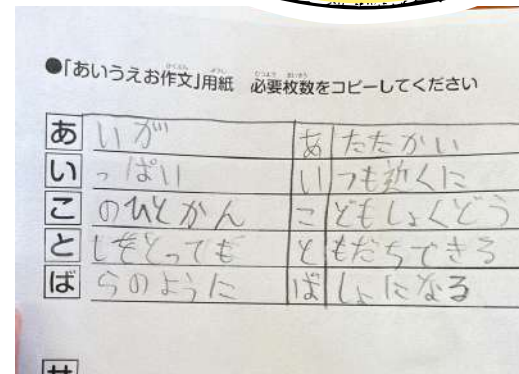 ●「あいうえお作文」用紙 必要枚数をコピーしてください
あ いが あ たたかい
い っぱい い つも近くに
こ のひとかん こ どもしょくどう
と しをとっても と もだちできる
ば らのように ば しょになる